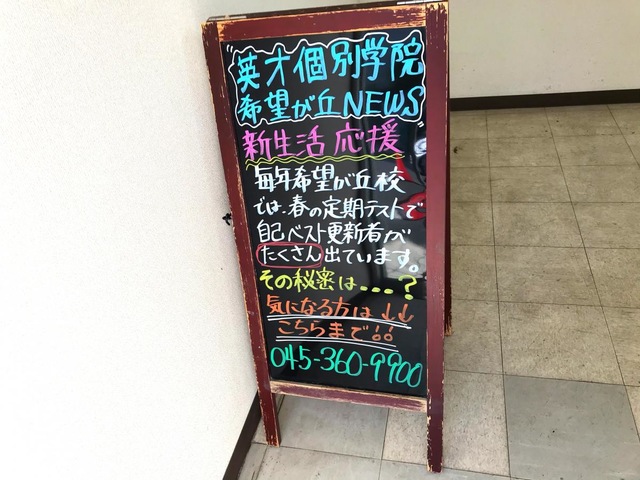 英才個別学院
希望が丘NEWS
新生活応援
毎年希望が丘校
では、春の定期テストで
自己ベスト更新者が
たくさん出ています。
その秘密は・・・?
気になる方は↓↓
こちらまで!!
045-360-9900